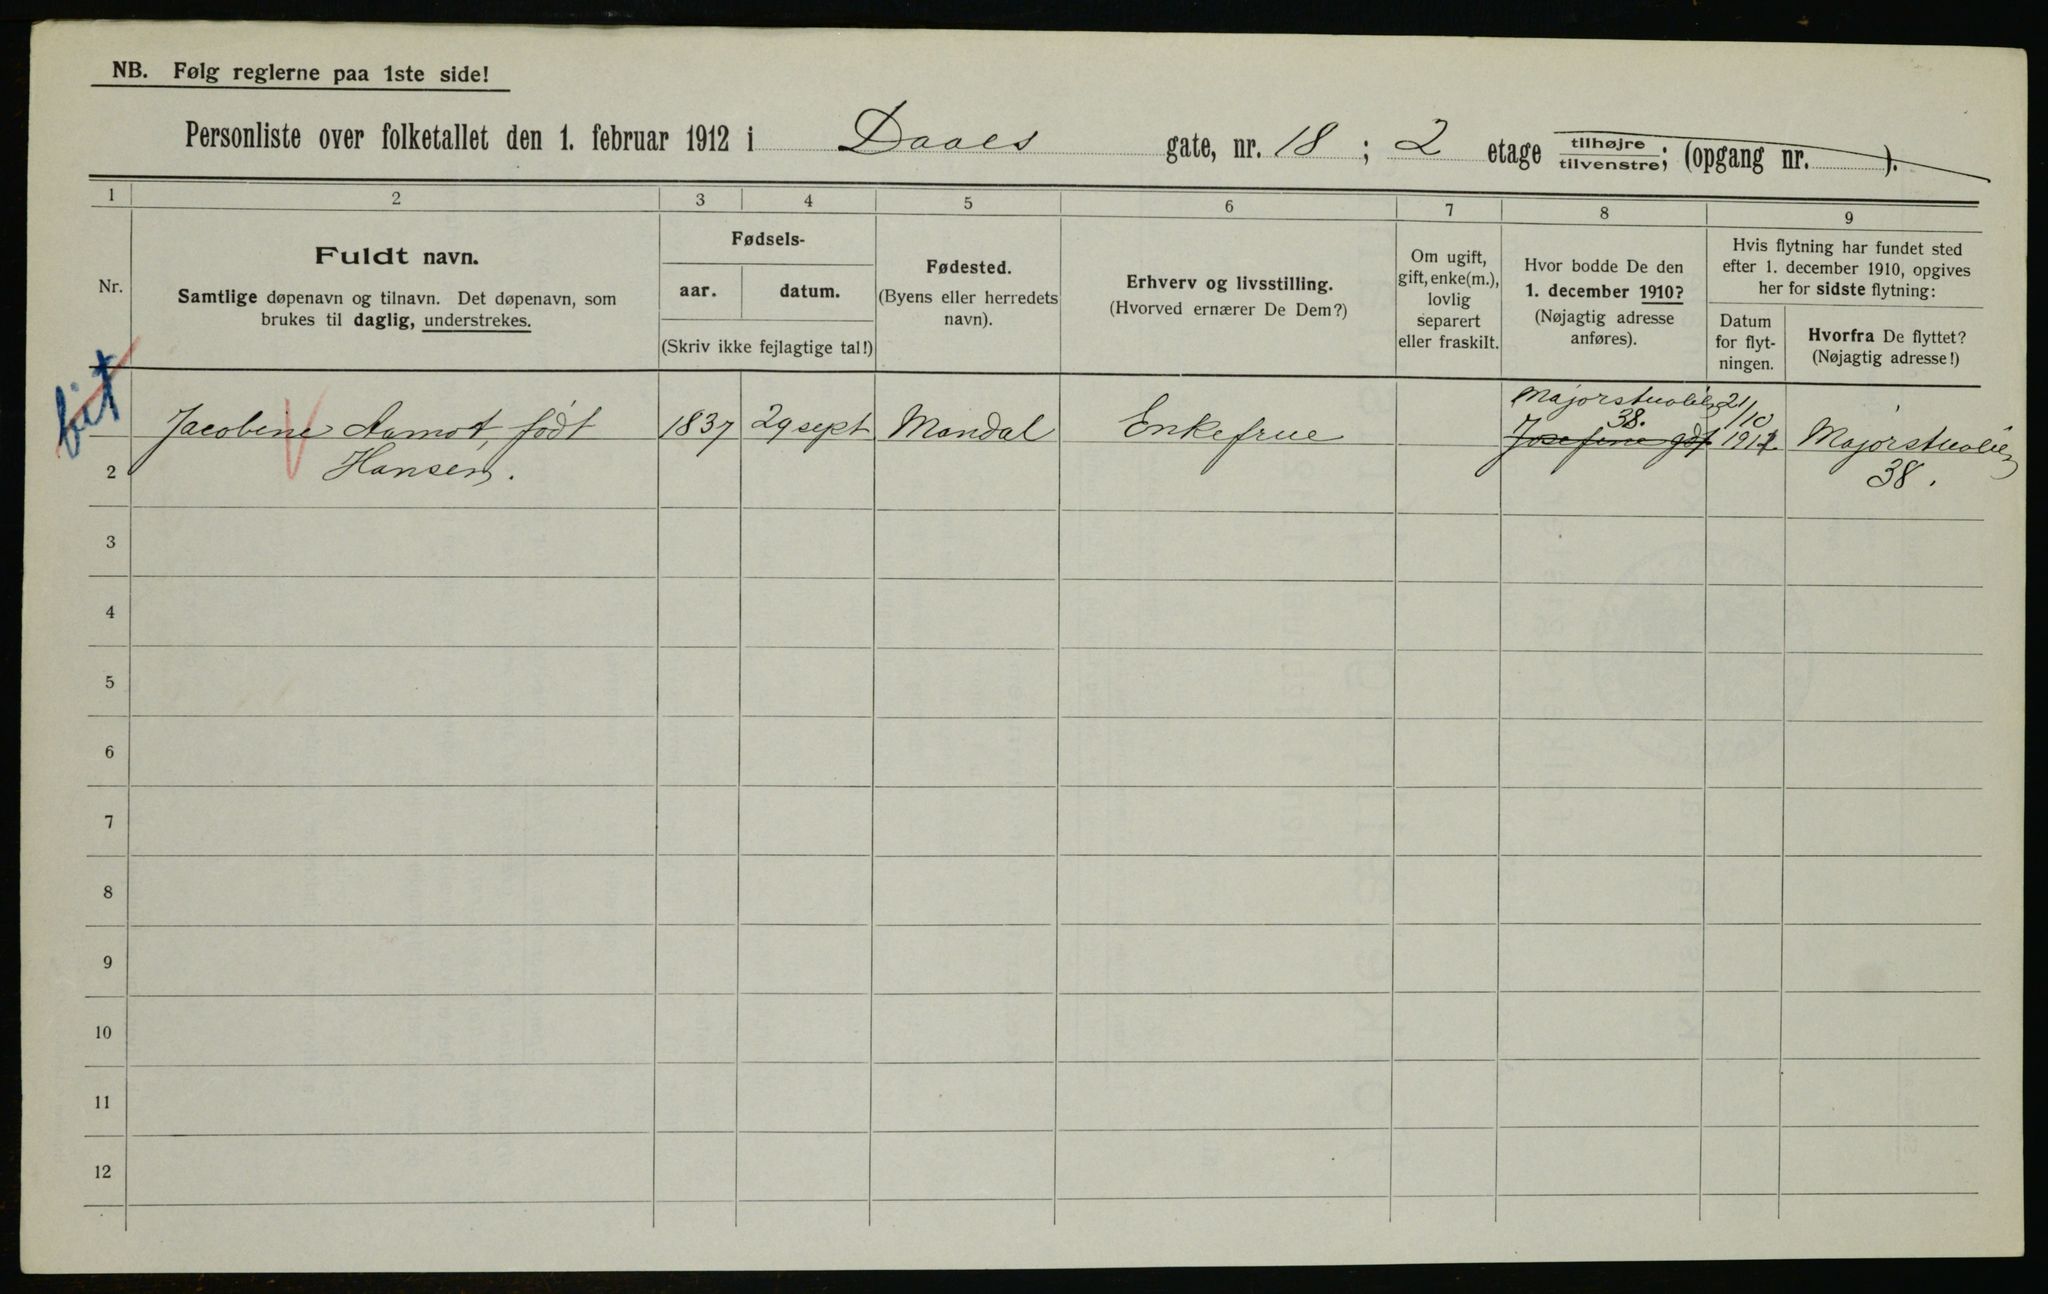 NB. Følg reglerne paa 1ste side!
Personliste over folketallet den 1. februar 1912 i Daaes gate, nr. 18 ; 2 etage tilhøjre tilvenstre; (opgang nr. ).
1 2 3 4 5 6 7 8 9
Nr.
Fuldt navn.
Samtlige døpenavn og tilnavn. Det døpenavn, som
brukes til daglig, understrekes.
Fødsels-
aar. datum.
(Skriv ikke fejlagtige tal!)
Fødested.
(Byens eller herredets
navn).
Erhverv og livsstilling.
(Hvorved ernærer De Dem?)
Om ugift,
gift, enke(m.),
lovlig
separert
eller fraskilt.
Hvor bodde De den
1. december 1910?
(Nøjagtig adresse
anføres).
Hvis flytning har fundet sted
efter 1. december 1910, opgives
her for sidste flytning:
Datum
for flyt-
ningen.
Hvorfra De flyttet?
(Nøjagtig adresse!)
Jacobine Aamot, født
Hansen.
1837
29 sept
Mandal
Enkefrue
38.
Josefine gd
21/10
Majorstuvéien
38.
2
3
4
5
6
7
8
9
10
11
12